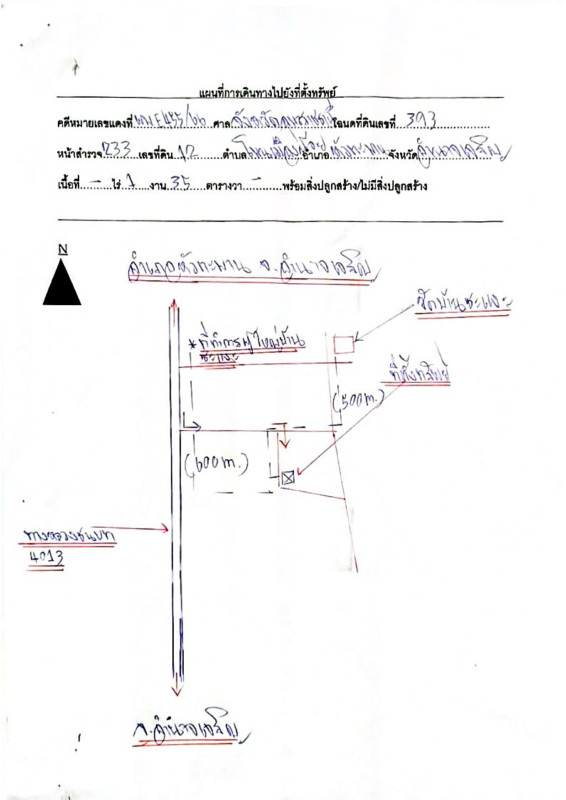 แผนที่การเดินทางไปยังที่ตั้งทรัพย์
คดีหมายเลขแดงที่ ผบE455/66 ศาล จังหวัด โฉนดที่ดินเลขที่ 393
หน้าสำรวจ 233 เลขที่ดิน 12 ตำบล อำเภอ หัวตะพาน จังหวัด อำนาจเจริญ
เนื้อที่ - ไร่ 1 งาน 35 ตารางวา - พร้อมสิ่งปลูกสร้าง/ไม่มีสิ่งปลูกสร้าง
N
อำเภอหัวตะพาน จ.อำนาจเจริญ
วัดบ้าน
*ที่ทำการผู้ใหญ่บ้าน
ที่ตั้งทรัพย์
(500m.)
(600m.)
ทางหลวงชนบท
4013
จ.อำนาจเจริญ